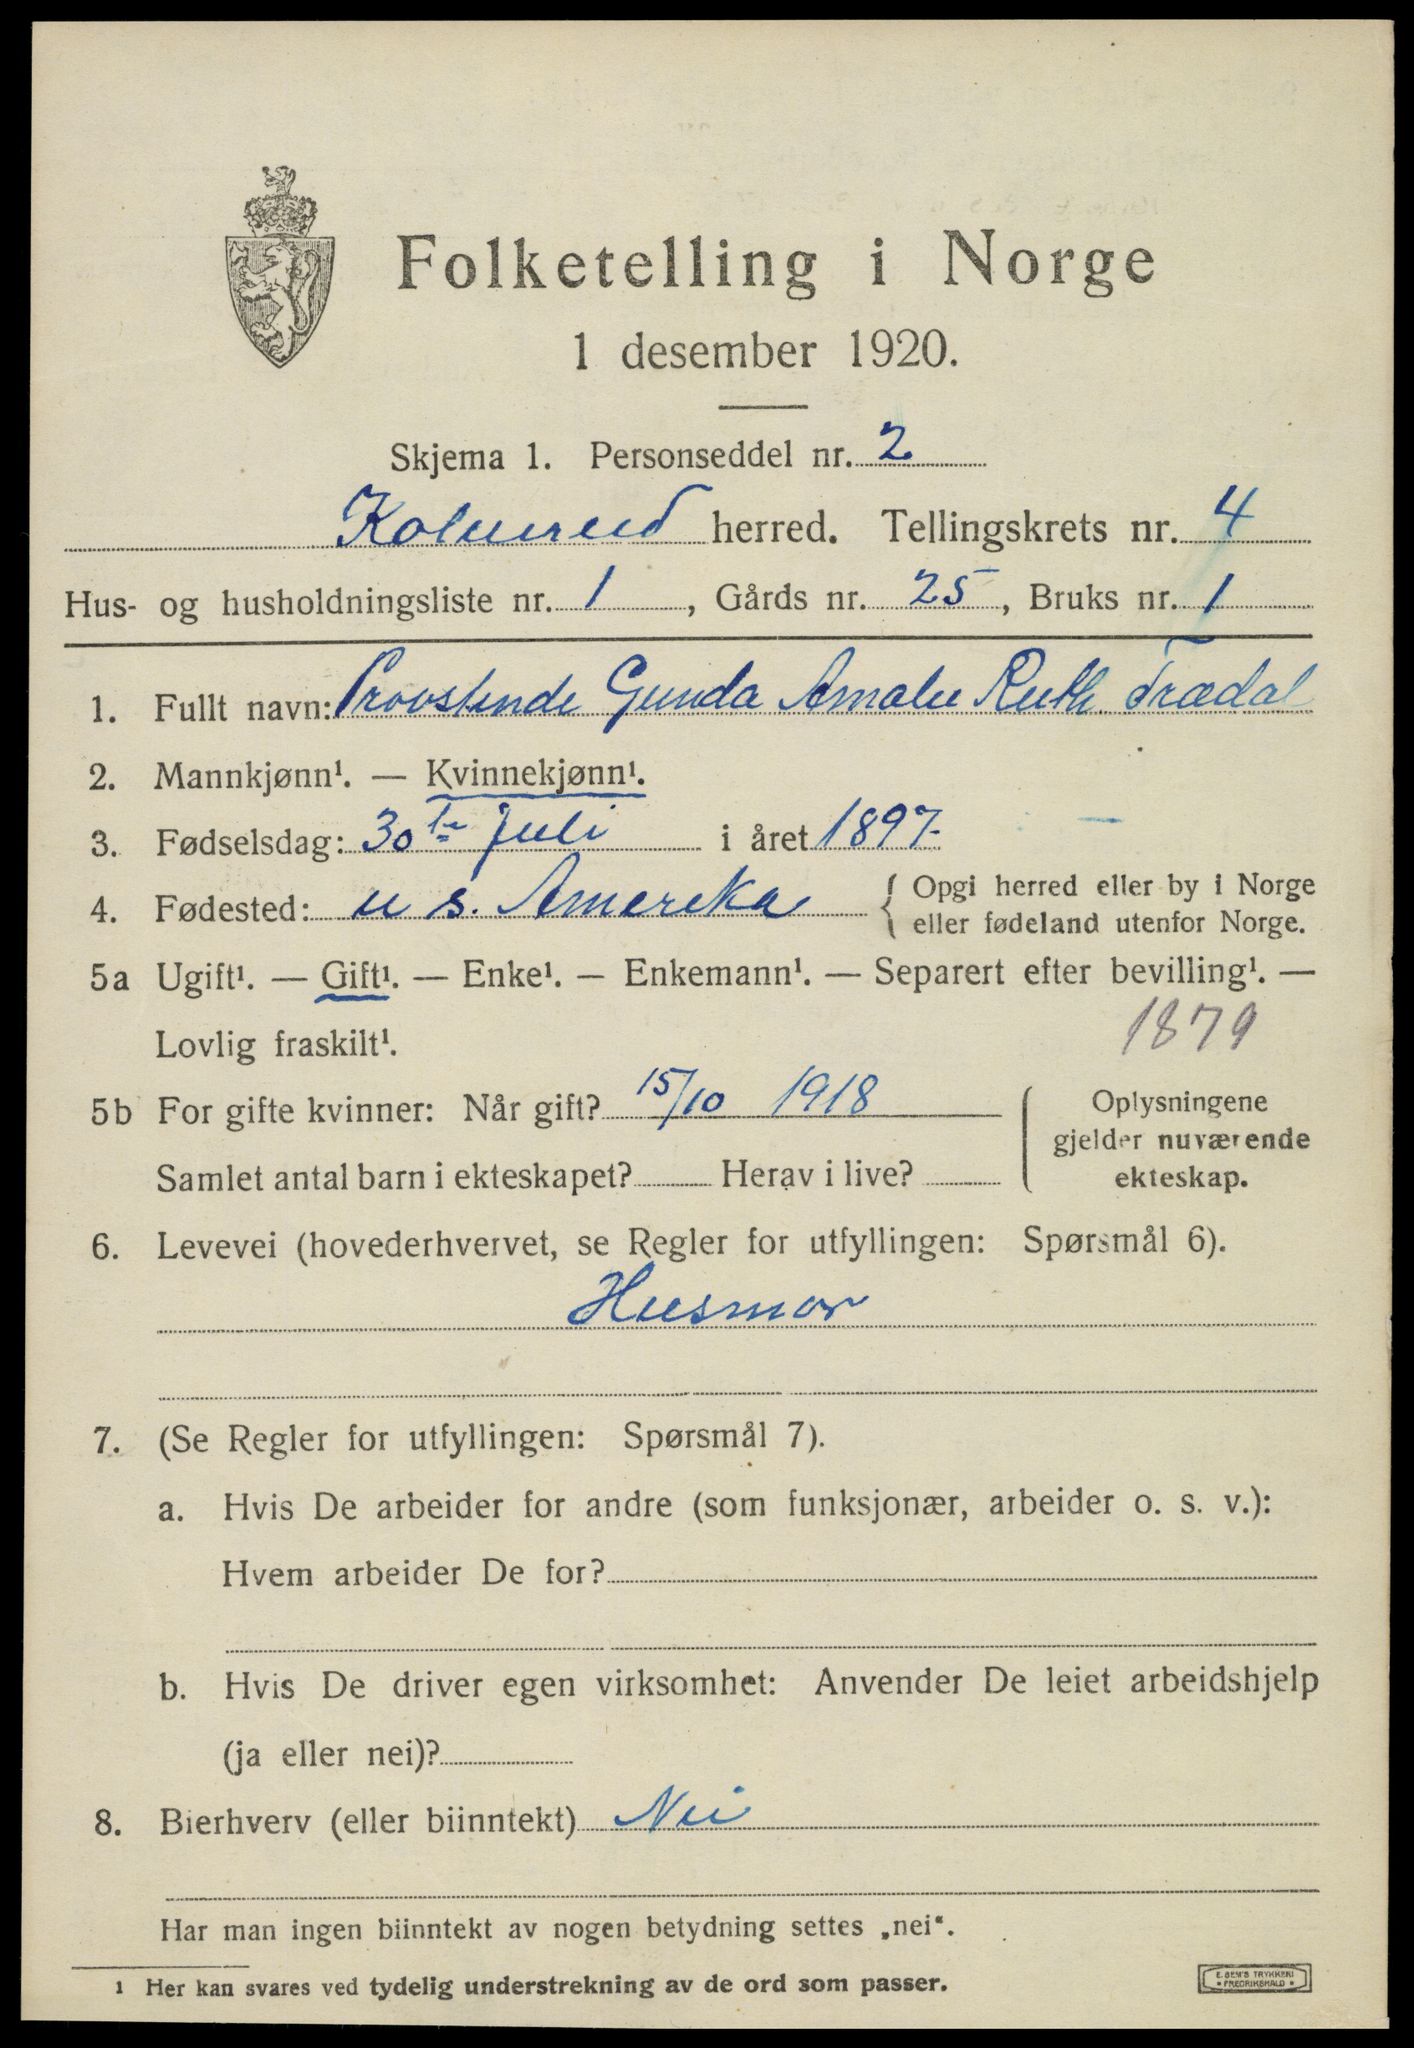 Folketelling i Norge
1 desember 1920.
Skjema 1. Personseddel nr. 2
Kolvereid herred. Tellingskrets nr. 4
Hus- og husholdningsliste nr. 1, Gårds nr. 25, Bruks nr. 1
1. Fullt navn: Provstinde Gunda Amalie Ruth Trædal
2. Mannkjønn¹. — Kvinnekjønn¹.
3. Fødselsdag: 30te Juli i året 1897.
4. Fødested: U S. Amerika { Opgi herred eller by i Norge
eller fødeland utenfor Norge.
5a Ugift¹. — Gift¹. — Enke¹. — Enkemann¹. — Separert efter bevilling¹. —
Lovlig fraskilt¹. 1879
5b For gifte kvinner: Når gift? 15/10 1918
Samlet antal barn i ekteskapet? Herav i live?
Oplysningene
gjelder nuværende
ekteskap.
6. Levevei (hovederhvervet, se Regler for utfyllingen: Spørsmål 6).
Husmor
7. (Se Regler for utfyllingen: Spørsmål 7).
a. Hvis De arbeider for andre (som funksjonær, arbeider o. s. v.):
Hvem arbeider De for?
b. Hvis De driver egen virksomhet: Anvender De leiet arbeidshjelp
(ja eller nei)?
8. Bierhverv (eller biinntekt) Nei
Har man ingen biinntekt av nogen betydning settes „nei“.
1 Her kan svares ved tydelig understrekning av de ord som passer.
E. SEM'S TRYKKERI
• FREDRIKSHALD •